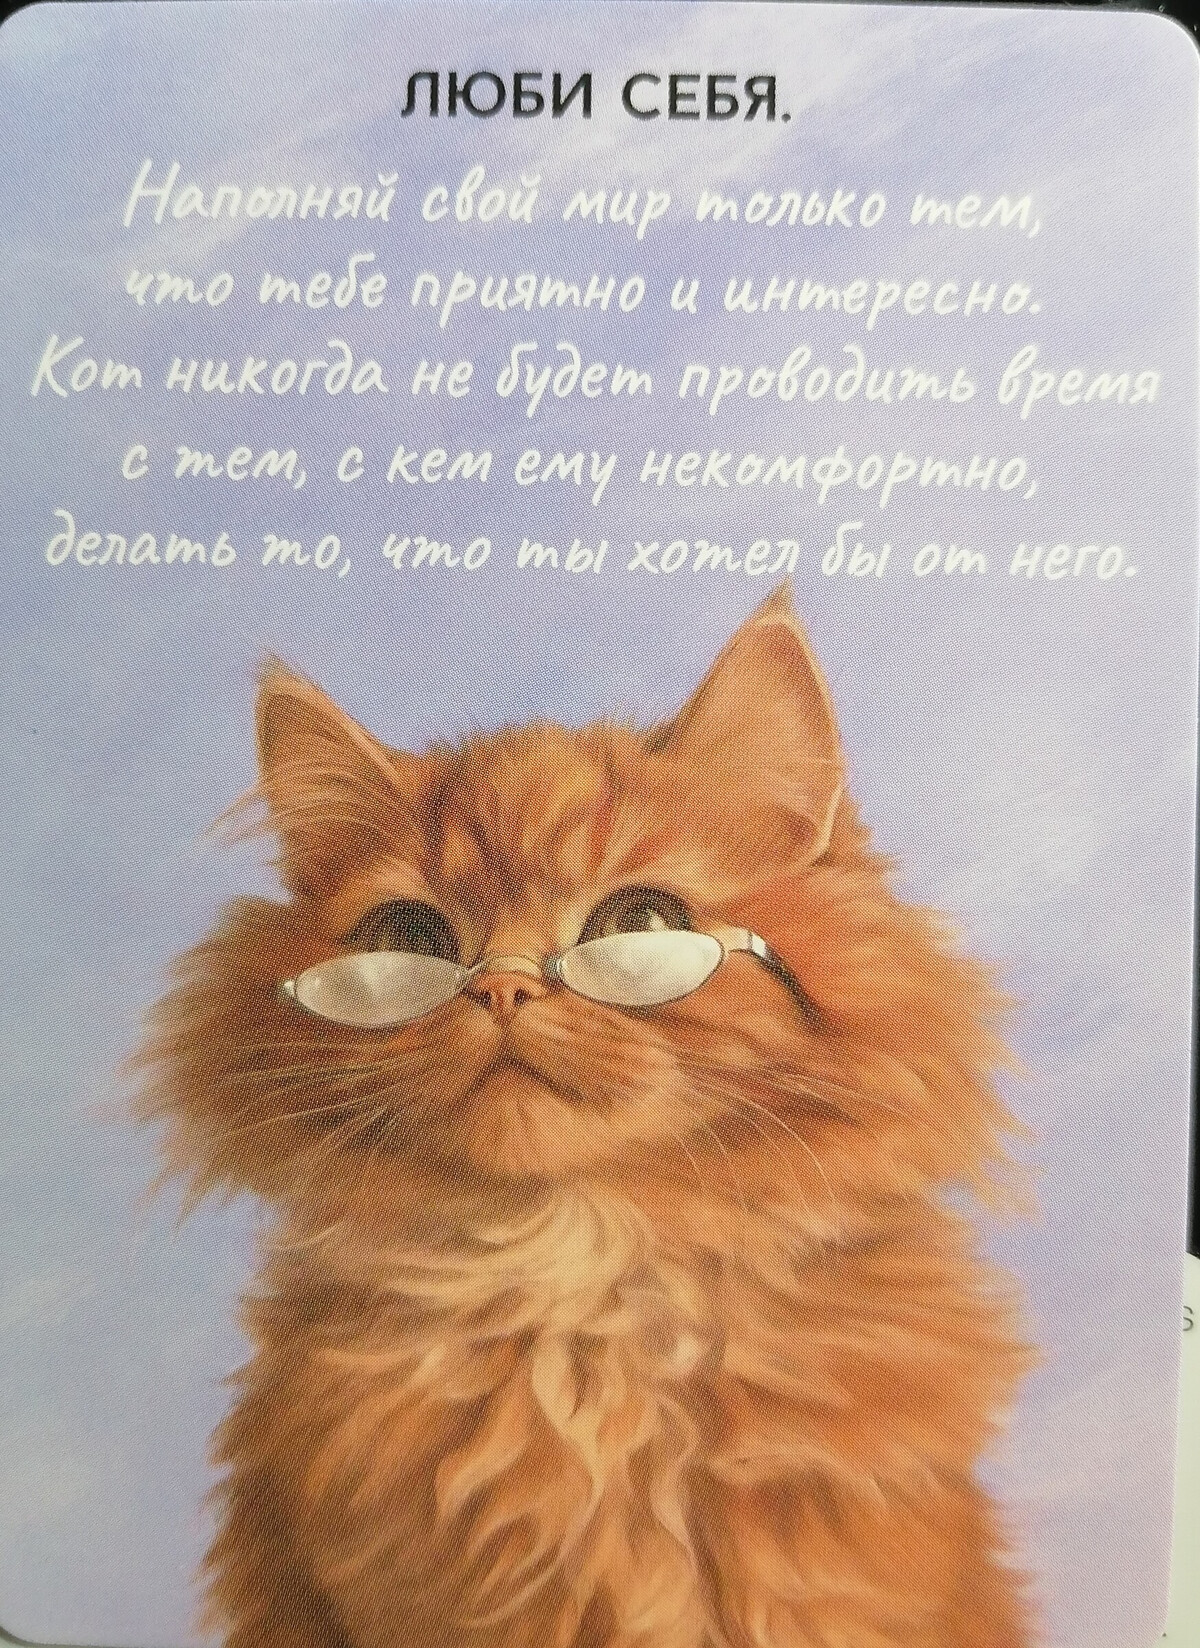 ЛЮБИ СЕБЯ.
Наполняй свой мир только тем,
что тебе приятно и интересно.
Кот никогда не будет проводить время
с тем, с кем ему некомфортно,
делать то, что ты хотел бы от него.